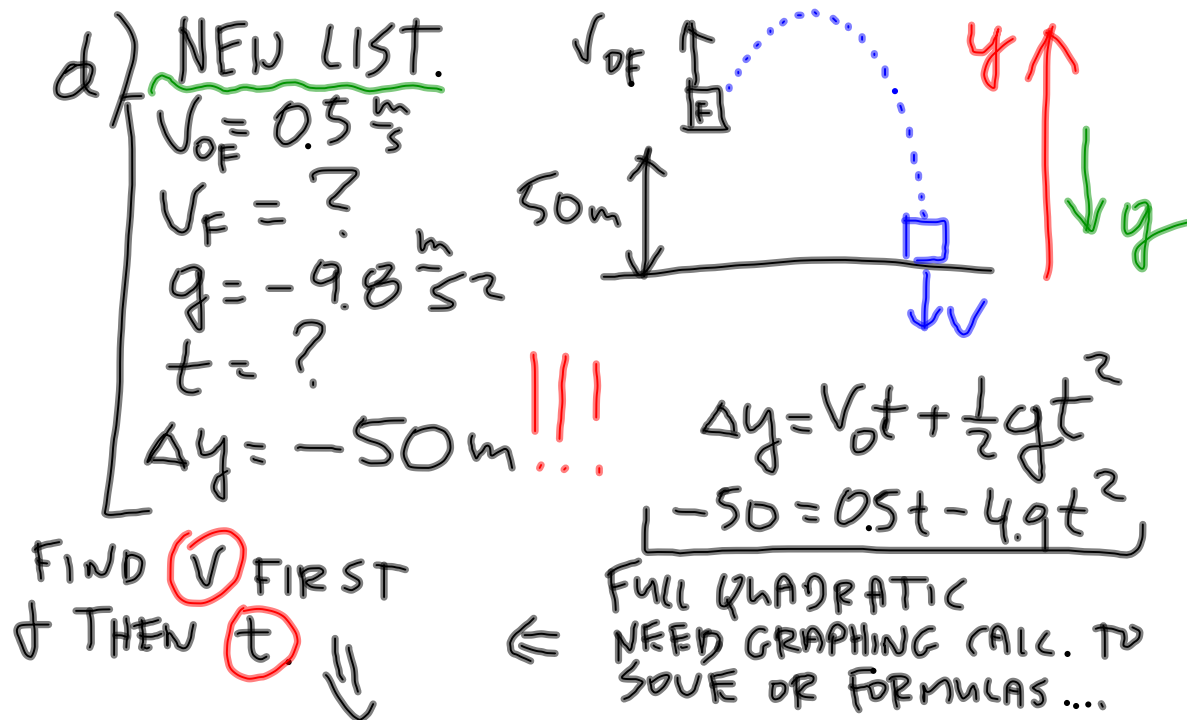 d) NEW LIST.
V₀F = 0.5 m/s
VF = ?
g = -9.8 m/s²
t = ?
Δy = -50m !!!
FIND V FIRST
& THEN t.
V₀F
F
50m
V
y
g
Δy = V₀t + ½gt²
-50 = 0.5t - 4.9t²
FULL QUADRATIC
⇐ NEED GRAPHING CALC. TO
SOVE OR FORMULAS ....